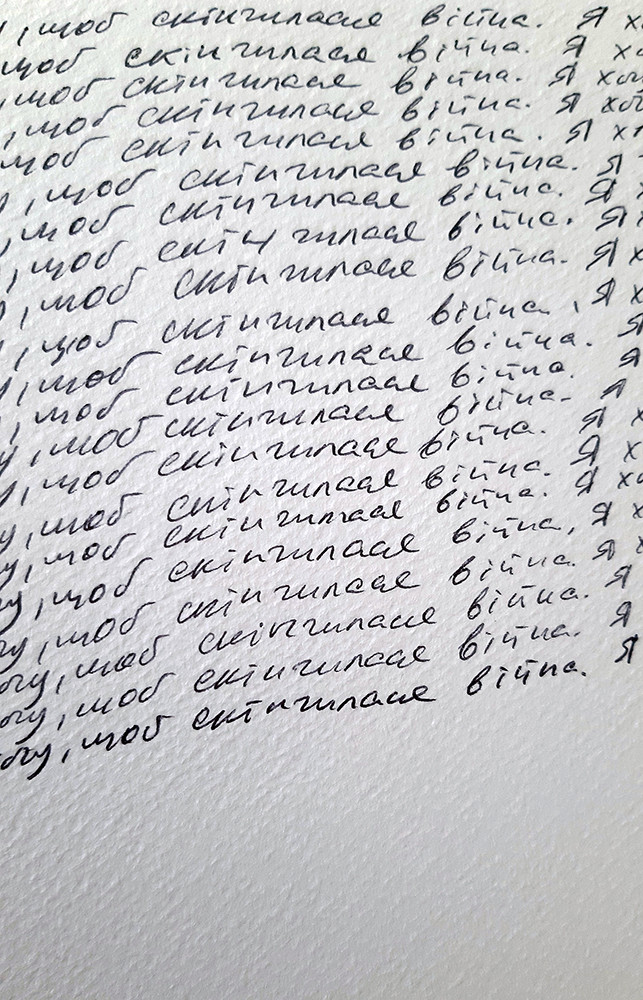 , щоб скінчилася війна. Я х
щоб скінчилася війна. Я х
, щоб скінчилася війна. Я хоч
, щоб скінчилася війна. Я хо
щоб скінчилася війна. Я х
, щоб скінчилася війна. Я
, щоб скінчилася війна. Я
, щоб скінчилася війна. Я
, щоб скінчилася війна. Я х
, щоб скінчилася війна. Я х
у, щоб скінчилася війна. Я
, щоб скінчилася війна. Я
у, щоб скінчилася війна. Я
у, щоб скінчилася війна. Я х
у, щоб скінчилася війна. Я х
у, щоб скінчилася війна. Я х
чу, щоб скінчилася війна, Я х
чу, щоб скінчилася війна. Я х
очу, щоб скінчилася війна. Я
очу, щоб скінчилася війна. Я
очу, щоб скінчилася війна. Я